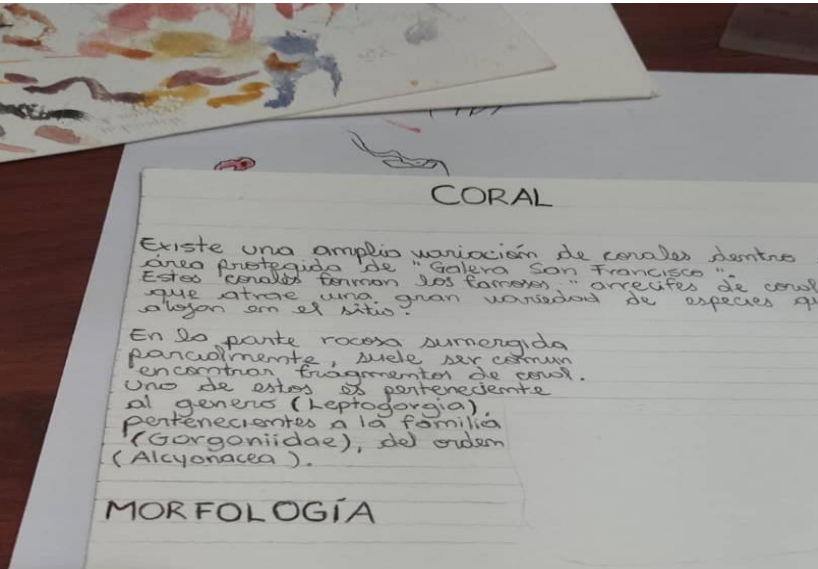 CORAL
Existe una amplia variación de corales dentro
área protegida de "Galera San Francisco".
Estos corales forman los famosos "arrecifes de coral
que atrae una gran variedad de especies qu
alojan en el sitio.
En la parte rocosa sumergida
parcialmente, suele ser comun
encontrar fragmentos de coral.
Uno de estos es perteneciente
al genero (Leptogorgia),
pertenecientes a la familia
(Gorgoniidae), del orden
(Alcyonacea).
MORFOLOGÍA